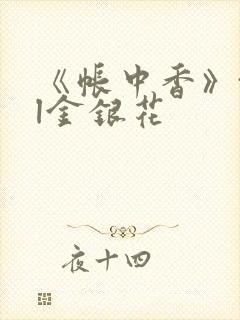 《帐中香》
|金银花
夜十四